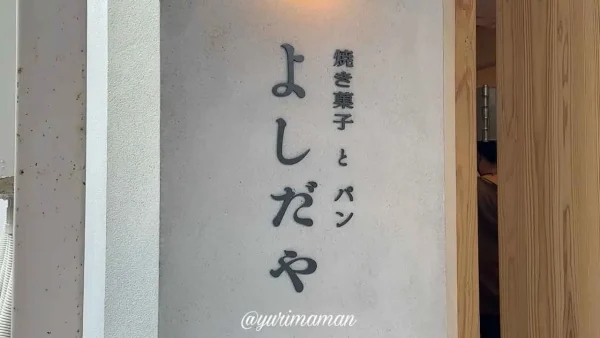 焼き菓子 と パン
よしだや
@yurimaman